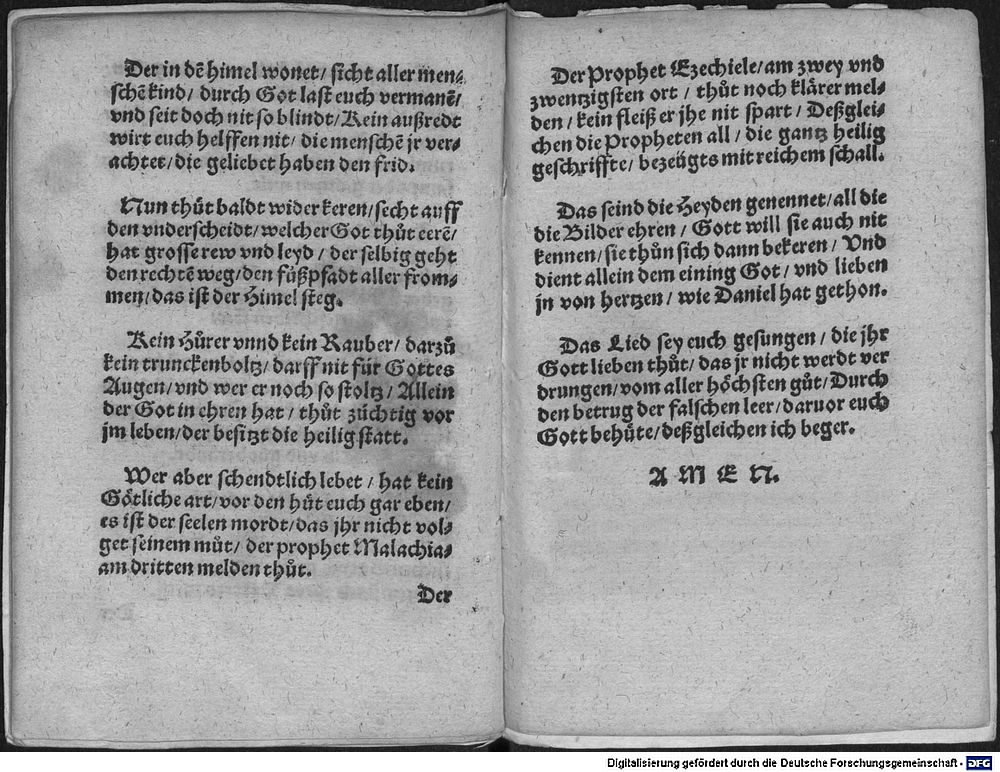 Der in dē himel wonet/ sicht aller men⸗
schē kind/ durch Got last euch vermanē/
vnd seit doch nit so blindt/ Kein außredt
wirt euch helffen nit/ die menschē jr ver⸗
achtet/ die geliebet haben den frid.
Nun thůt baldt wider keren/ secht auff
den vnderscheidt/ welcher Got thůt eerē/
hat grosse rew vnd leyd/ der selbig geht
den rechtē weg/ den fůßpfadt aller from⸗
men/ das ist der Himel steg.
Kein Hůrer vnnd kein Rauber/ darzů
kein trunckenboltz/ darff nit für Gottes
Augen/ vnd wer er noch so stoltz/ Allein
der Got in ehren hat/ thůt züchtig vor
jm leben/ der besitzt die heilig statt.
Wer aber schendtlich lebet/ hat kein
Götliche art/ vor den hůt euch gar eben/
es ist der seelen mordt/ das jhr nicht vol⸗
get seinem můt/ der prophet Malachia⸗
am dritten melden thůt.
Der
Der Prophet Ezechiele/ am zwey vnd
zwentzigsten ort/ thůt noch klärer mel⸗
den/ kein fleiß er jhe nit spart/ Deßglei⸗
chen die Propheten all/ die gantz heilig
geschriffte/ bezeügts mit reichem schall.
Das seind die Heyden genennet/ all die
die Bilder ehren/ Gott will sie auch nit
kennen/ sie thůn sich dann bekeren/ Vnd
dient allein dem eining Got/ vnd lieben
jn von hertzen/ wie Daniel hat gethon.
Das Lied sey euch gesungen/ die jhr
Gott lieben thůt/ das jr nicht werdt ver
drungen/ vom aller höchsten gůt/ Durch
den betrug der falschen leer/ daruor euch
Gott behůte/ deßgleichen ich beger.
A M E N.
Digitalisierung gefördert durch die Deutsche Forschungsgemeinschaft - DFG